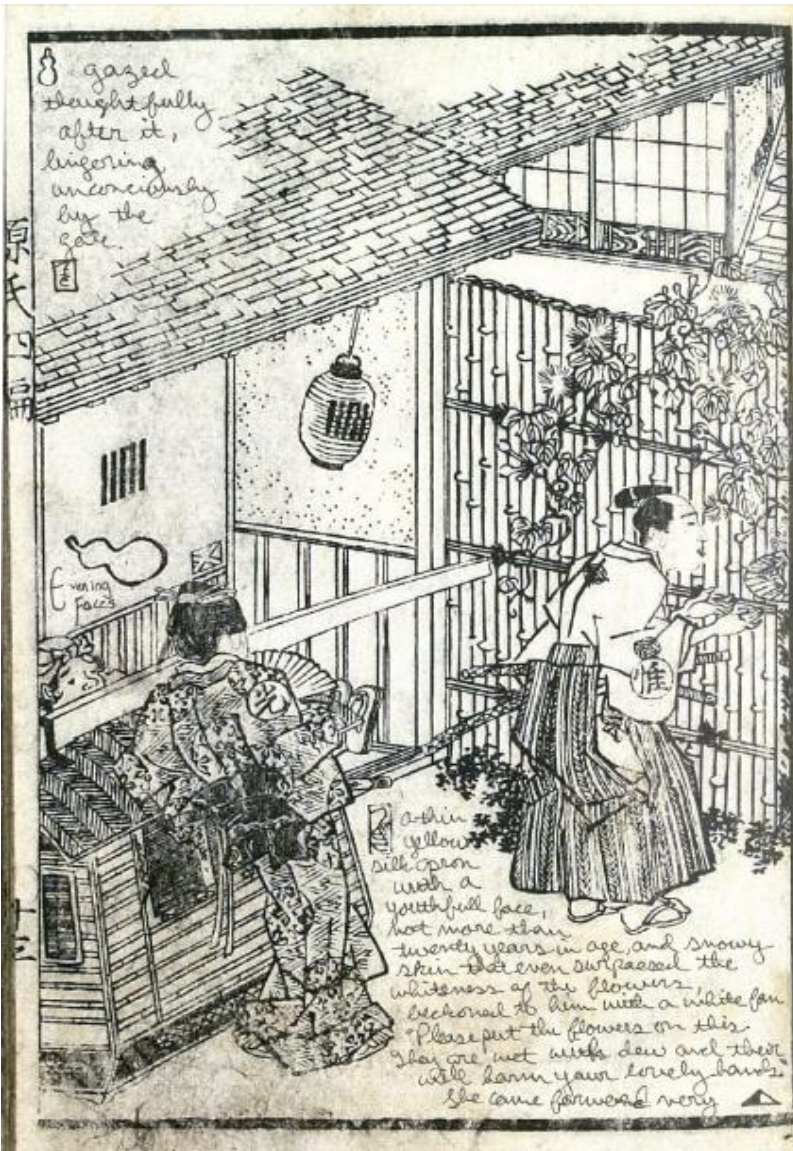 gazed
thoughtfully
after it,
lingering
unconciously
by the
gate.
源氏四編
Evening
Faces
惟
a thin
yellow
silk apron
with a
youthfull face,
not more than
twenty years in age, and snowy
skin that even surpassed the
whiteness of the flowers,
beckoned to him with a white fan
"Please put the flowers on this.
They are wet with dew and their
will harm your lovely hands."
She came forward very